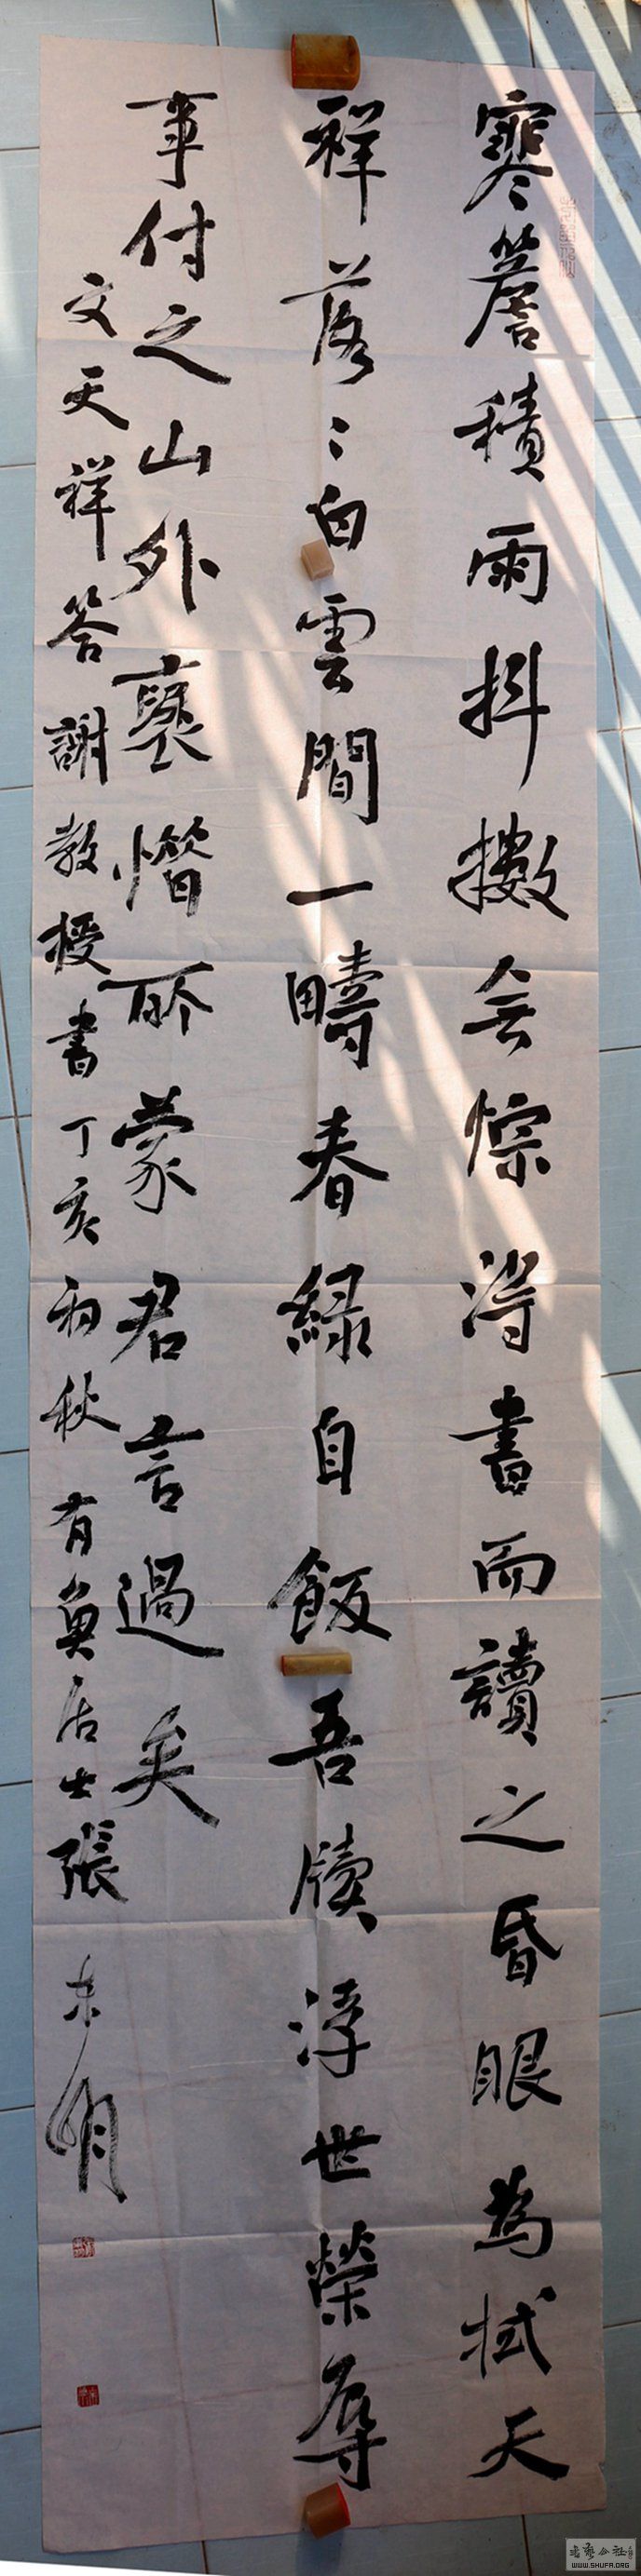 寒簷積雨抖擻无悰淂書而讀之昏眼為拭天
祥落〻白雲間一疇春綠自飯吾牘浮世榮辱
事付之山外褒所蒙君言過矣
文天祥答謝教授書丁亥初秋有魚居士張东明
书艺公社
WWW.SHUFA.ORG